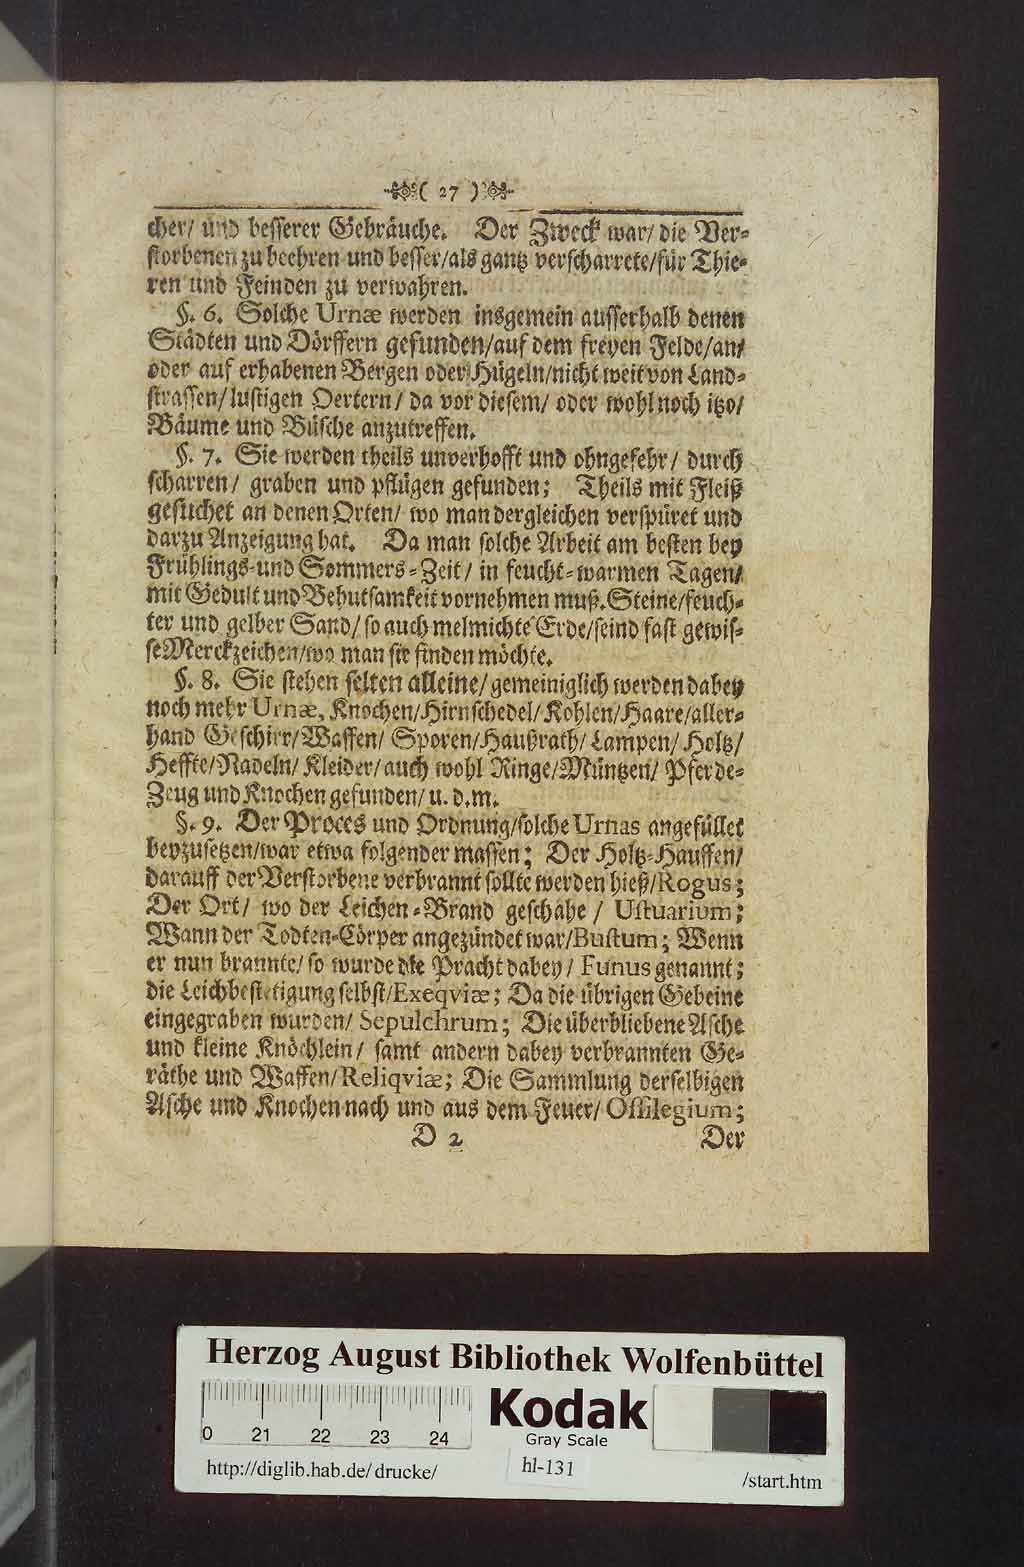 ( 27 )
cher/ und besserer Gebräuche. Der Zweck war/ die Ver-
storbenen zu beehren und besser/als gantz verscharrete/für Thie-
ren und Feinden zu verwahren.
§. 6. Solche Urnæ werden insgemein ausserhalb denen
Städten und Dörffern gefunden/auf dem freyen Felde/an/
oder auf erhabenen Bergen oder Hügeln/nicht weit von Land-
strassen/lustigen Oertern/ da vor diesem/ oder wohl noch itzo/
Bäume und Büsche anzutreffen.
§. 7. Sie werden theils unverhofft und ohngefehr/ durch
scharren/ graben und pflügen gefunden; Theils mit Fleiß
gesuchet an denen Orten/ wo man dergleichen verspüret und
darzu Anzeigung hat. Da man solche Arbeit am besten bey
Frühlings-und Sommers-Zeit/ in feucht-warmen Tagen/
mit Gedult und Behutsamkeit vornehmen muß. Steine/feuch-
ter und gelber Sand/ so auch melmichte Erde/seind fast gewis-
se Merckzeichen/wo man sie finden möchte.
§. 8. Sie stehen selten alleine/gemeiniglich werden dabey
noch mehr Urnæ, Knochen/Hirnschedel/Kohlen/Haare/aller-
hand Geschirr/Waffen/ Sporen/Haußrath/Lampen/ Holtz/
Heffte/Nadeln/ Kleider/ auch wohl Ringe/Müntzen/ Pferde-
Zeug und Knochen gefunden/ u. d. m.
§. 9. Der Proces und Ordnung/solche Urnas angefüllet
beyzusetzen/war etwa folgender massen; Der Holtz-Hauffen/
darauff der Verstorbene verbrannt sollte werden hieß/Rogus;
Der Ort/ wo der Leichen-Brand geschahe / Ustuarium;
Wann der Todten-Cörper angezündet war/Bustum; Wenn
er nun brannte/ so wurde die Pracht dabey/ Funus genannt;
die Leichbestetigung selbst/Exeqviæ; Da die übrigen Gebeine
eingegraben wurden/ Sepulchrum; Die überbliebene Asche
und kleine Knöchlein/ samt andern dabey verbrannten Ge-
räthe und Waffen/Reliqviæ; Die Sammlung derselbigen
Asche und Knochen nach und aus dem Feuer/ Ossilegium;
D 2 Der
Herzog August Bibliothek Wolfenbüttel
0 21 22 23 24
Kodak
Gray Scale
http://diglib.hab.de/drucke/ hl-131 /start.htm